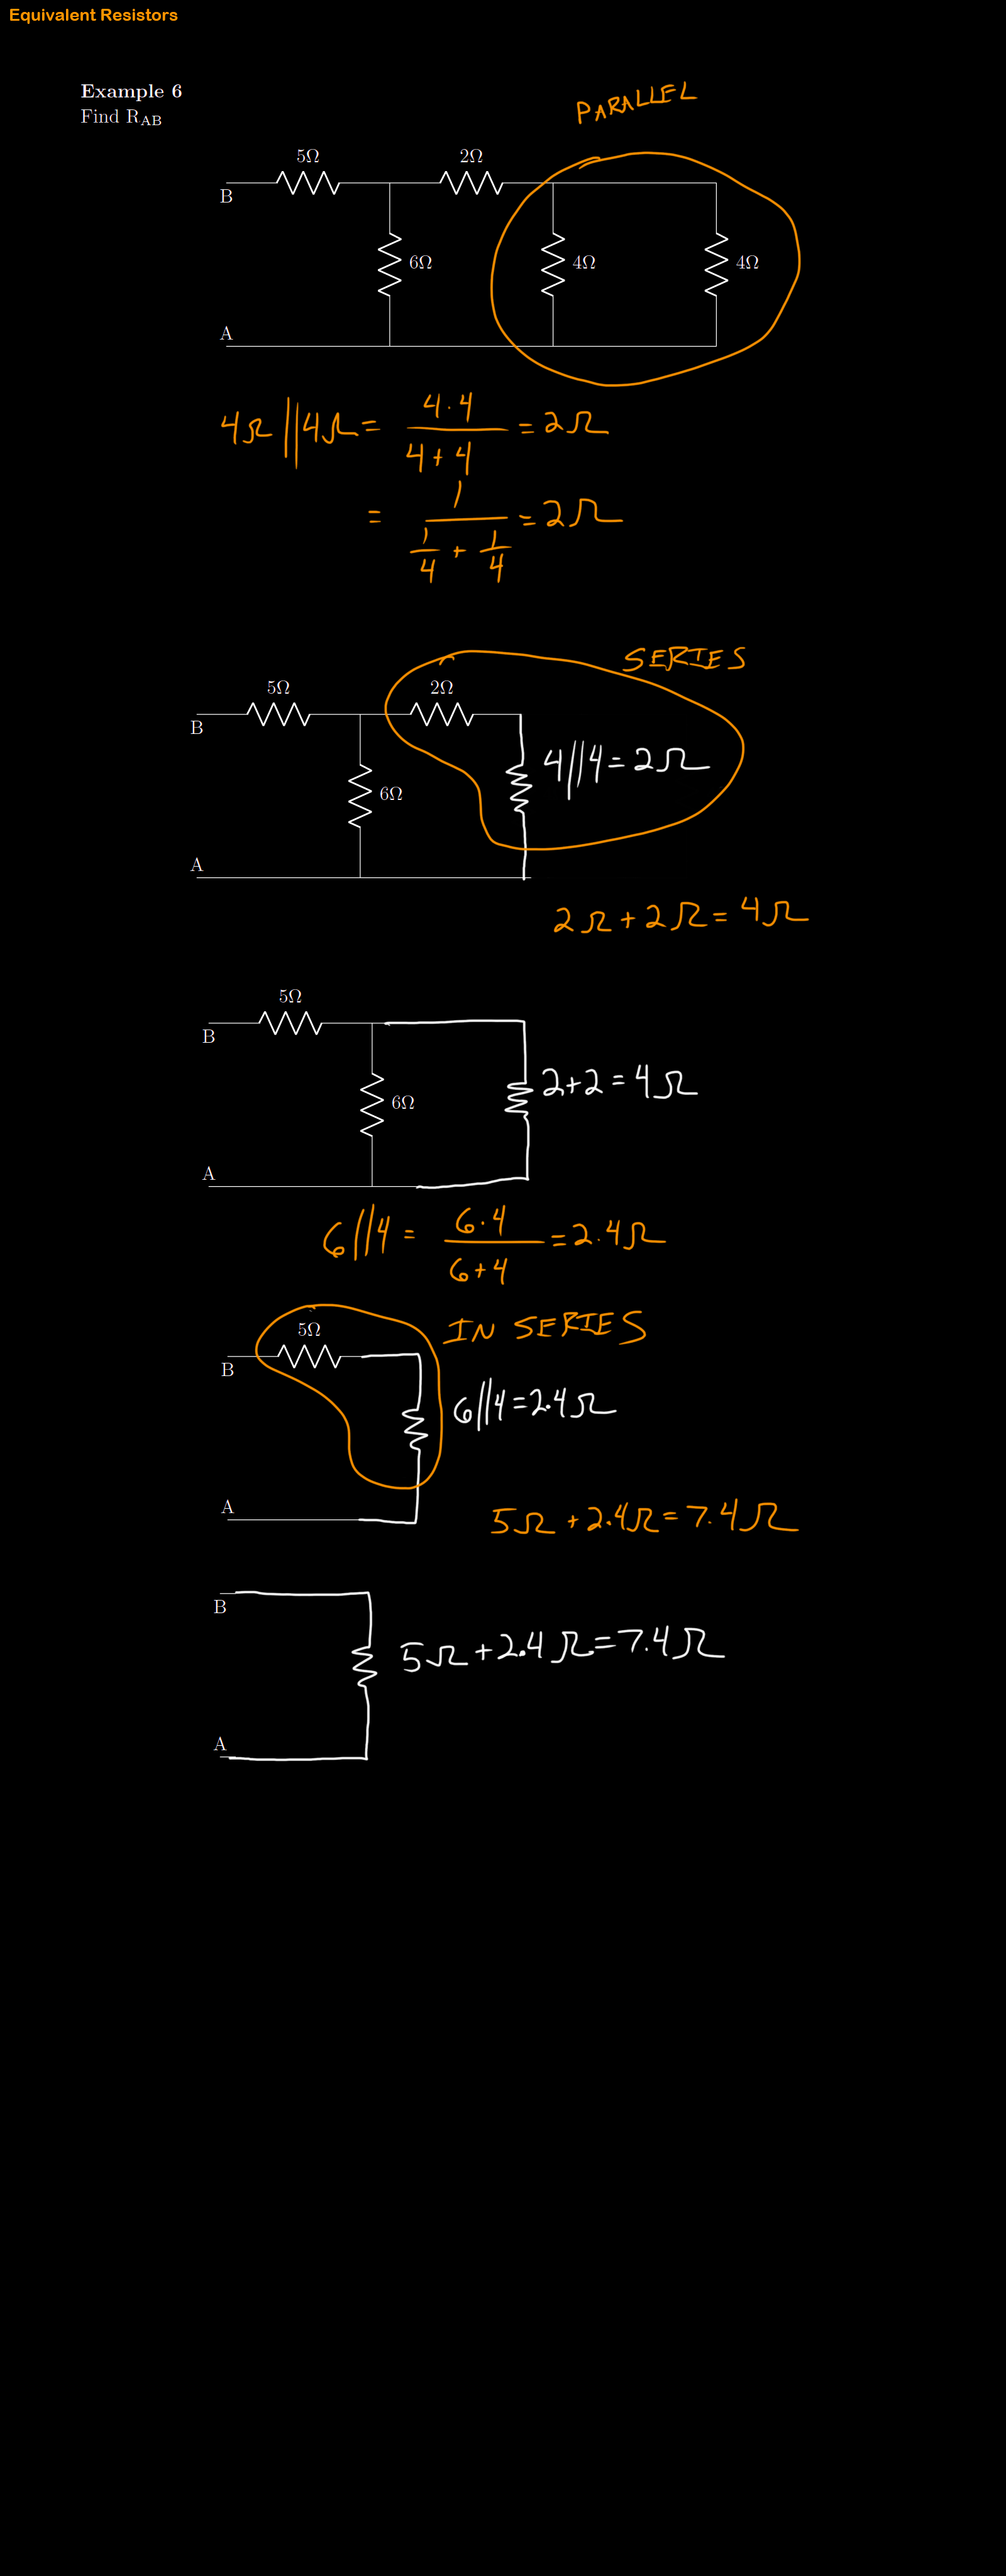 Equivalent Resistors
Example 6
Find R_AB
PARALLEL
5Ω 2Ω
B
6Ω 4Ω 4Ω
A
4Ω || 4Ω = 4·4 / 4+4 = 2Ω
= 1 / 1/4 + 1/4 = 2Ω
SERIES
5Ω 2Ω
B
4||4 = 2Ω
6Ω
A
2Ω + 2Ω = 4Ω
5Ω
B
2+2 = 4Ω
6Ω
A
6||4 = 6·4 / 6+4 = 2.4Ω
IN SERIES
5Ω
B
6||4 = 2.4Ω
A
5Ω + 2.4Ω = 7.4Ω
B
5Ω + 2.4Ω = 7.4Ω
A